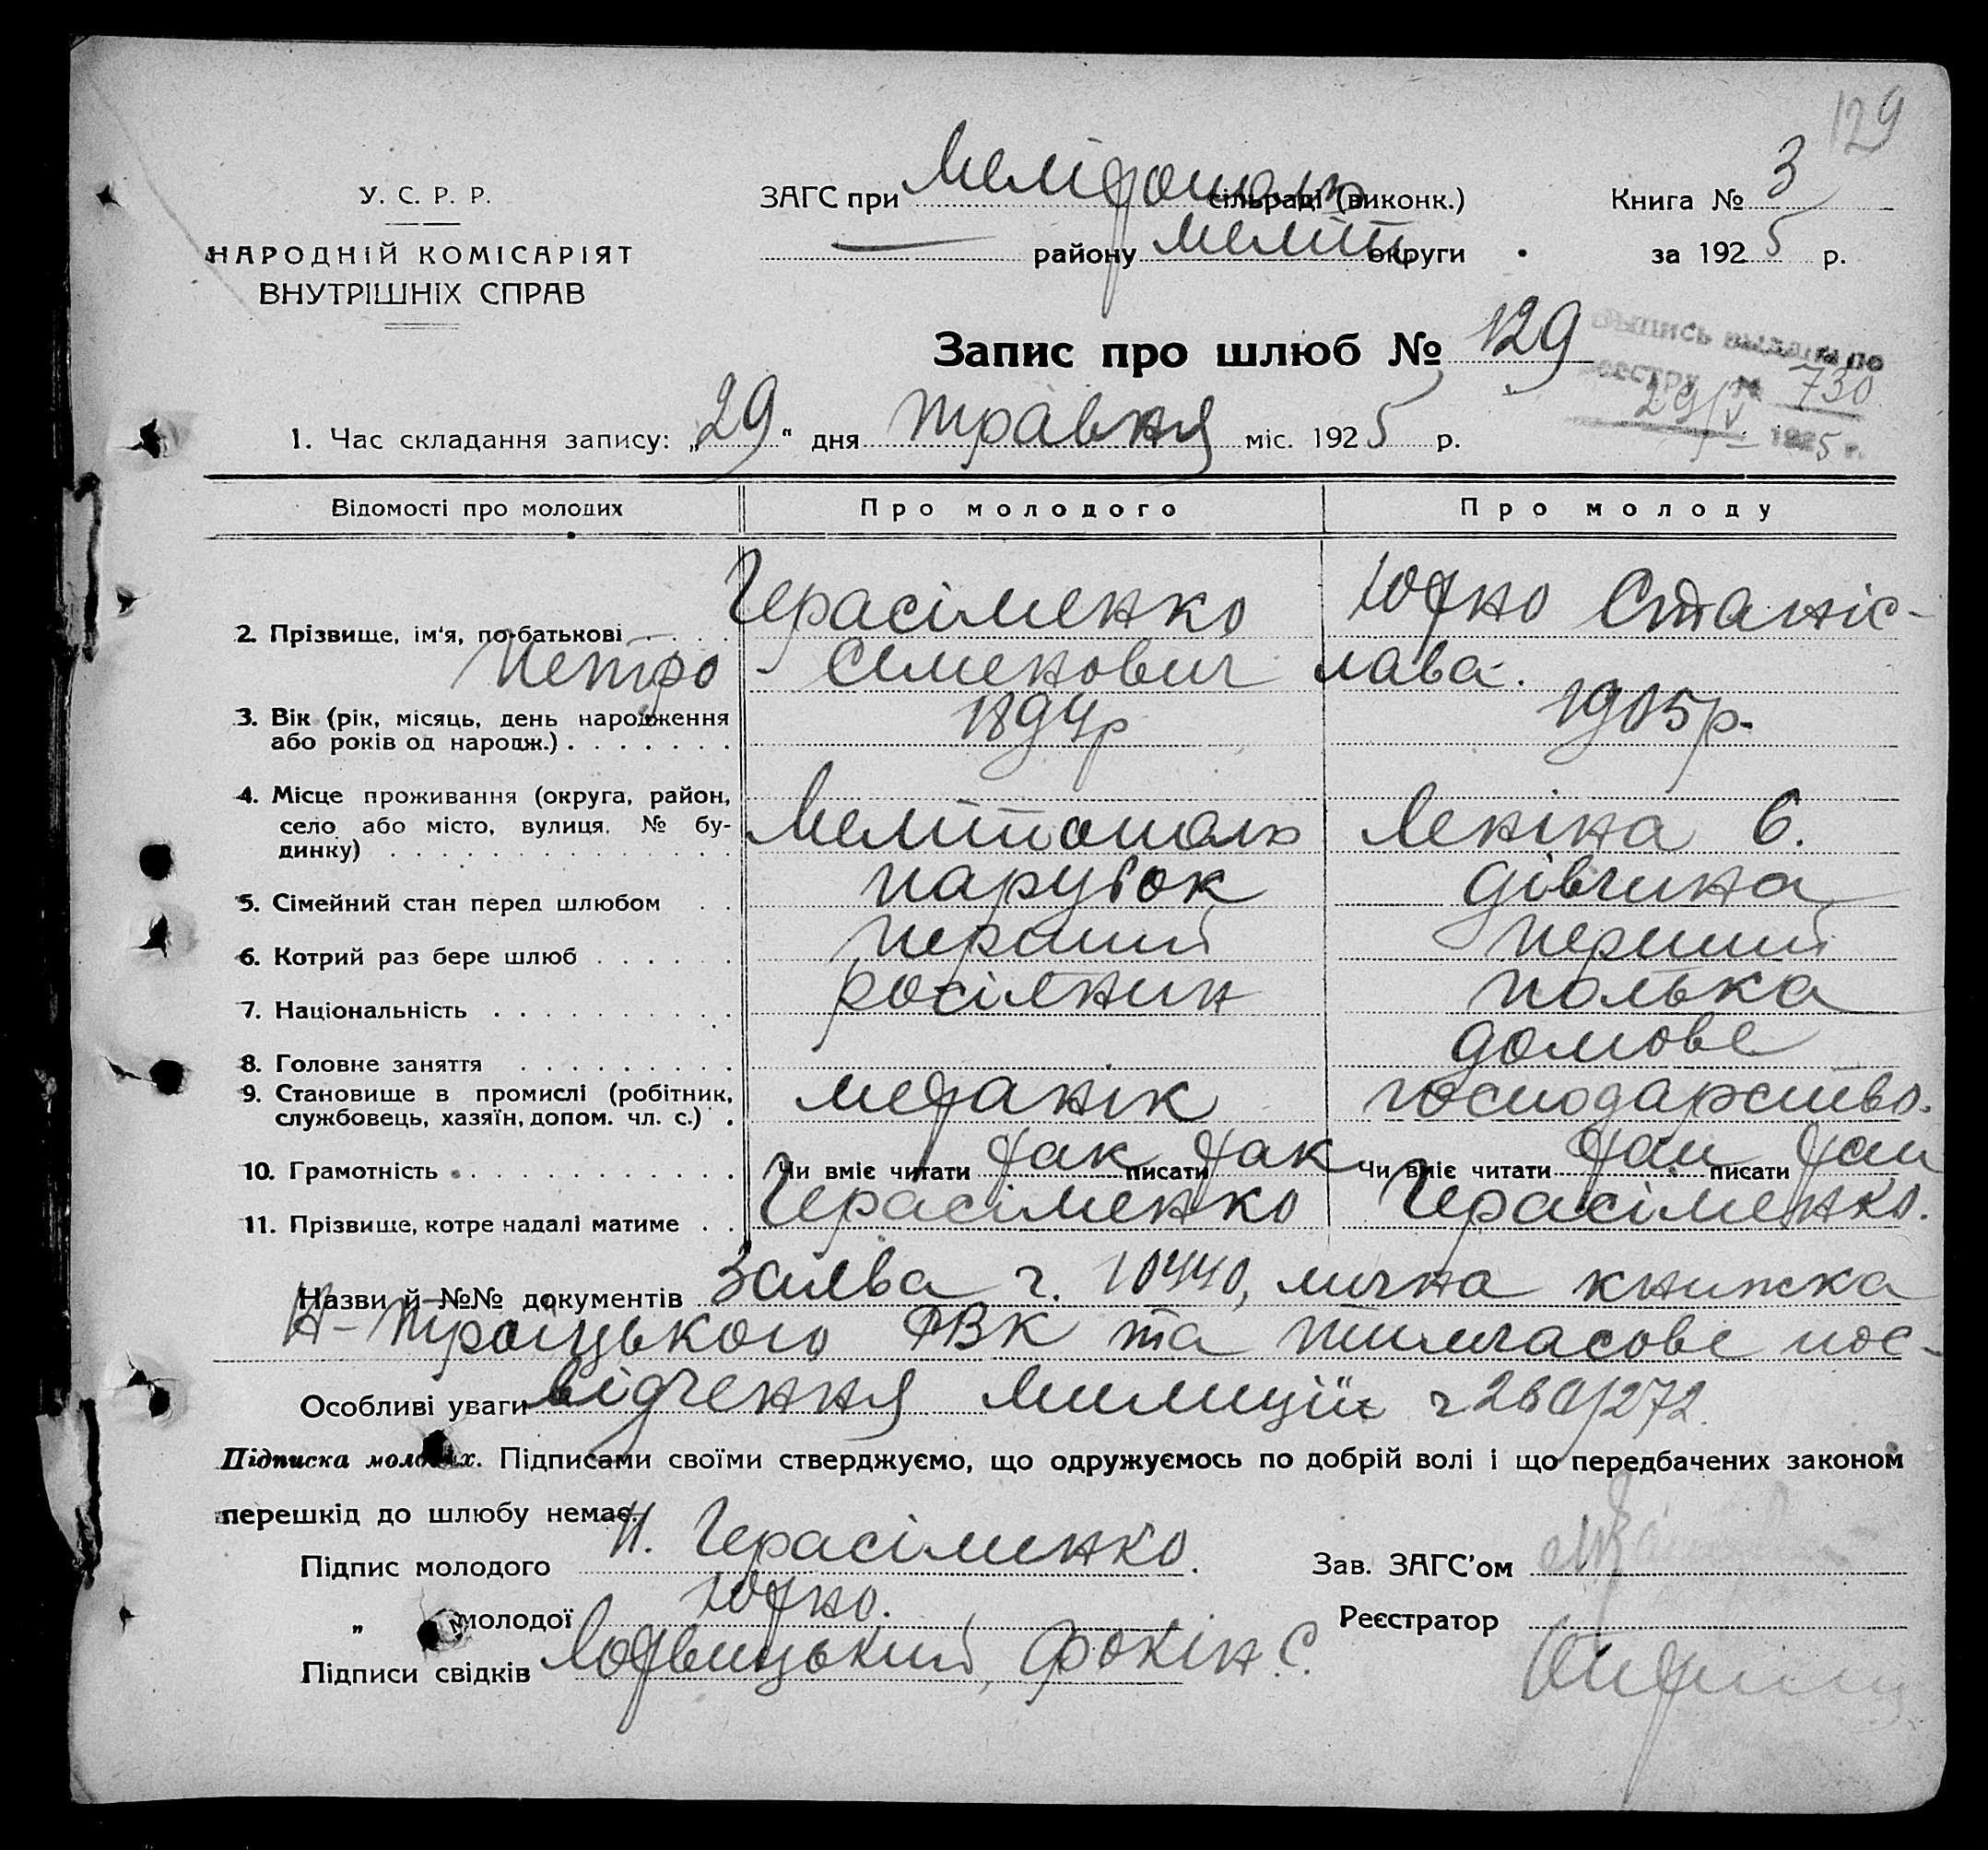 129
У. С. Р. Р.
НАРОДНІЙ КОМІСАРІЯТ
ВНУТРІШНІХ СПРАВ
ЗАГС при Меліт сільраді (виконк.)
району Меліт округи
Книга № 3
за 1925 р.
Запис про шлюб № 129
Выпись выдана по
реестру № 730
29/V 1925 г.
1. Час складання запису: „29" дня травня міс. 1925 р.
Відомості про молодих Про молодого Про молоду
2. Прізвище, ім'я, по-батькові Герасіменко Юхно Станіс-
Петро Семенович лава.
3. Вік (рік, місяць, день народження 1894р 1905р.
або років од народж.)
4. Місце проживання (округа, район,
село або місто, вулиця, № бу- Мелітополь Леніна 6.
динку)
5. Сімейний стан перед шлюбом парубок дівчина
6. Котрий раз бере шлюб перший перший
7. Національність росіянин полька
8. Головне заняття домове
9. Становище в промислі (робітник, механік господарство.
службовець, хазяїн, допом. чл. с.)
10. Грамотність Чи вміє читати так писати так Чи вміє читати писати
11. Прізвище, котре надалі матиме Герасіменко Герасіменко.
Назви й №№ документів Заява ч. 10440, лична книжка
Н-Троїцького РВК та тимчасове пос-
Особливі уваги відчення милиції ч 260/272.
Підписка молодих. Підписами своїми стверджуємо, що одружуємось по добрій волі і що передбачених законом
перешкід до шлюбу немає.
Підпис молодого П. Герасіменко.
Зав. ЗАГС'ом
„ молодої Юхно.
Реєстратор
Підписи свідків Фокін С.